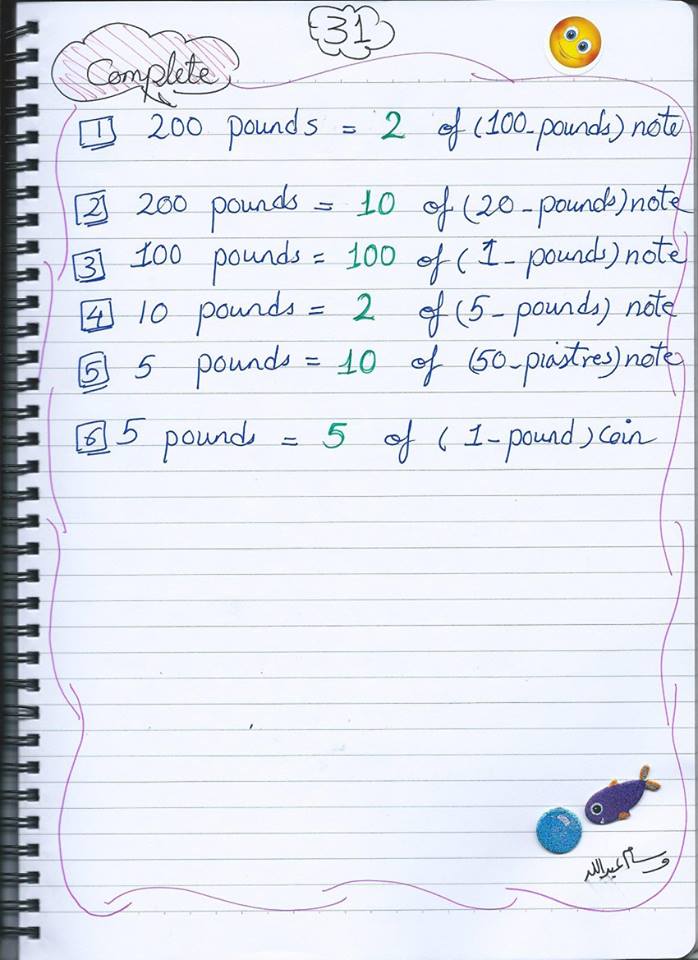 31
Complete
1 200 pounds = 2 of (100-pounds) note
2 200 pounds = 10 of (20-pounds) note
3 100 pounds = 100 of (1-pounds) note
4 10 pounds = 2 of (5-pounds) note
5 5 pounds = 10 of (50-piastres) note
6 5 pounds = 5 of (1-pound) coin
وسام عبدالله